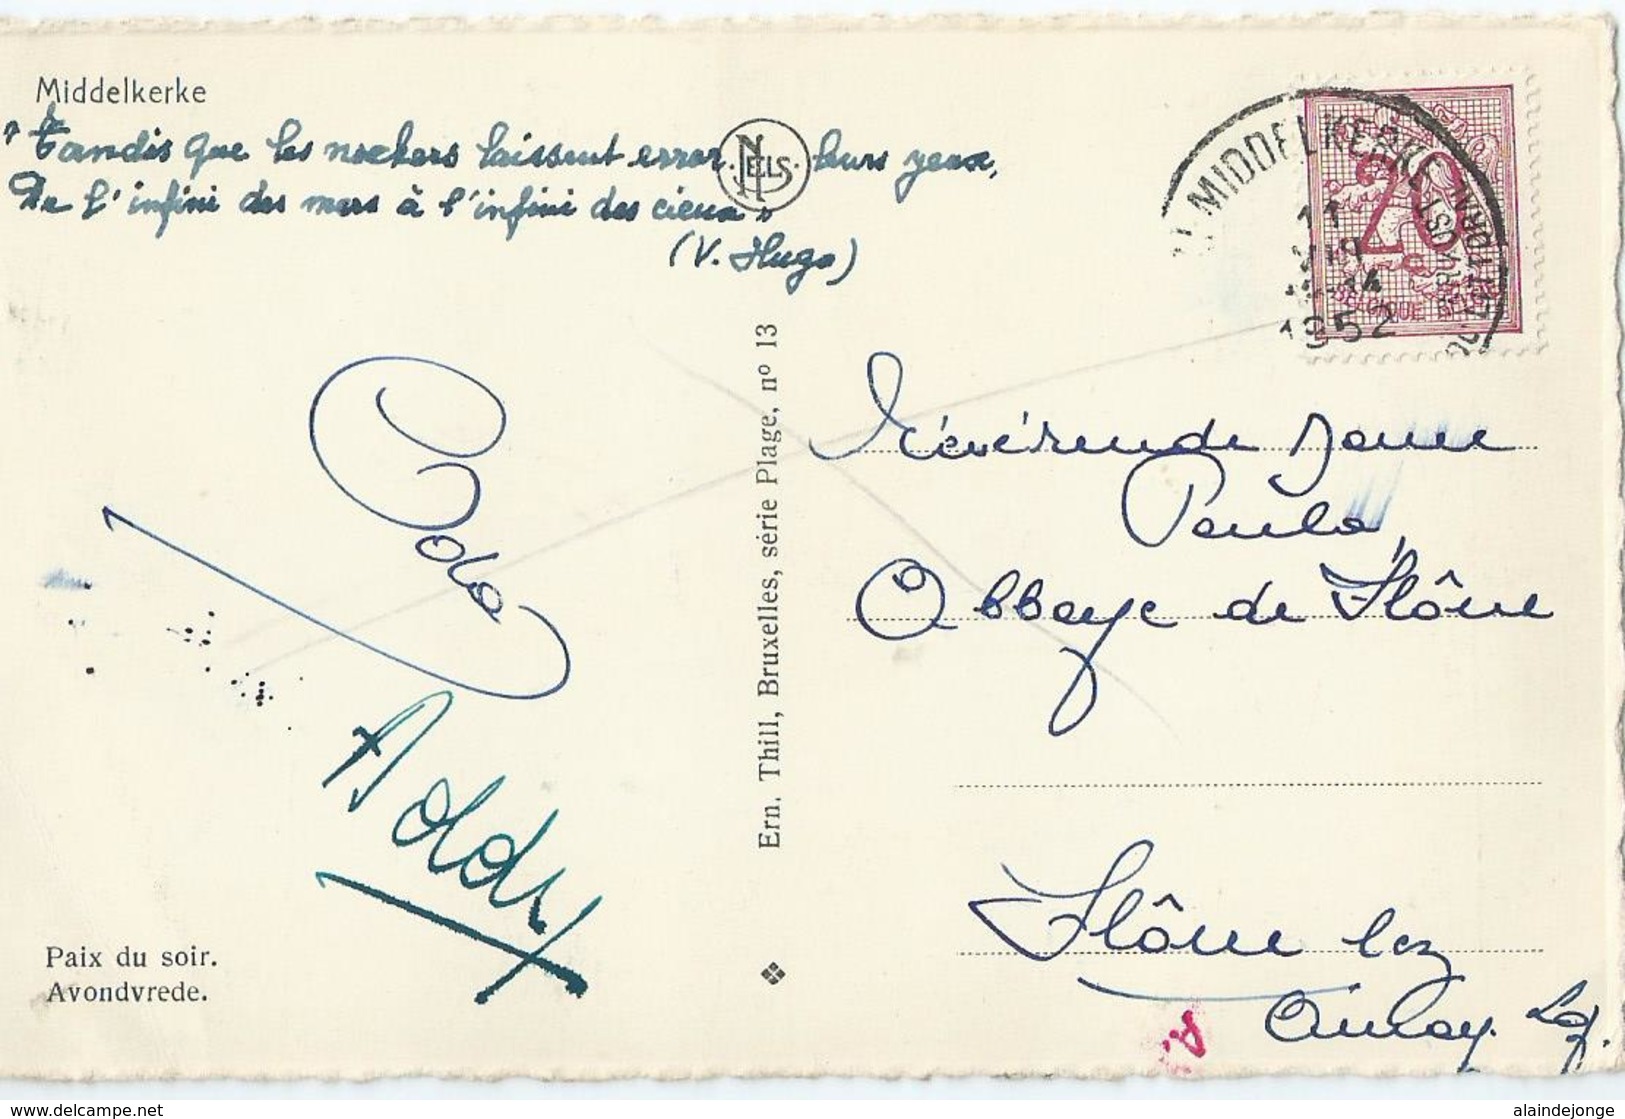 Middelkerke
"Tandis que les rochers laissent errer leurs yeux,
De l'infini des mers à l'infini des cieux"
(V. Hugo)
NELS
Oda
Addy
Paix du soir.
Avondvrede.
Ern. Thill, Bruxelles, série Plage, nº 13
MIDDELKERKE
11
VIII
14
1952
20
BELGIQUE
Révérende Dame
Paula
Abbaye de Flône
Flône lez
Amay.
delcampe.net
alaindejonge